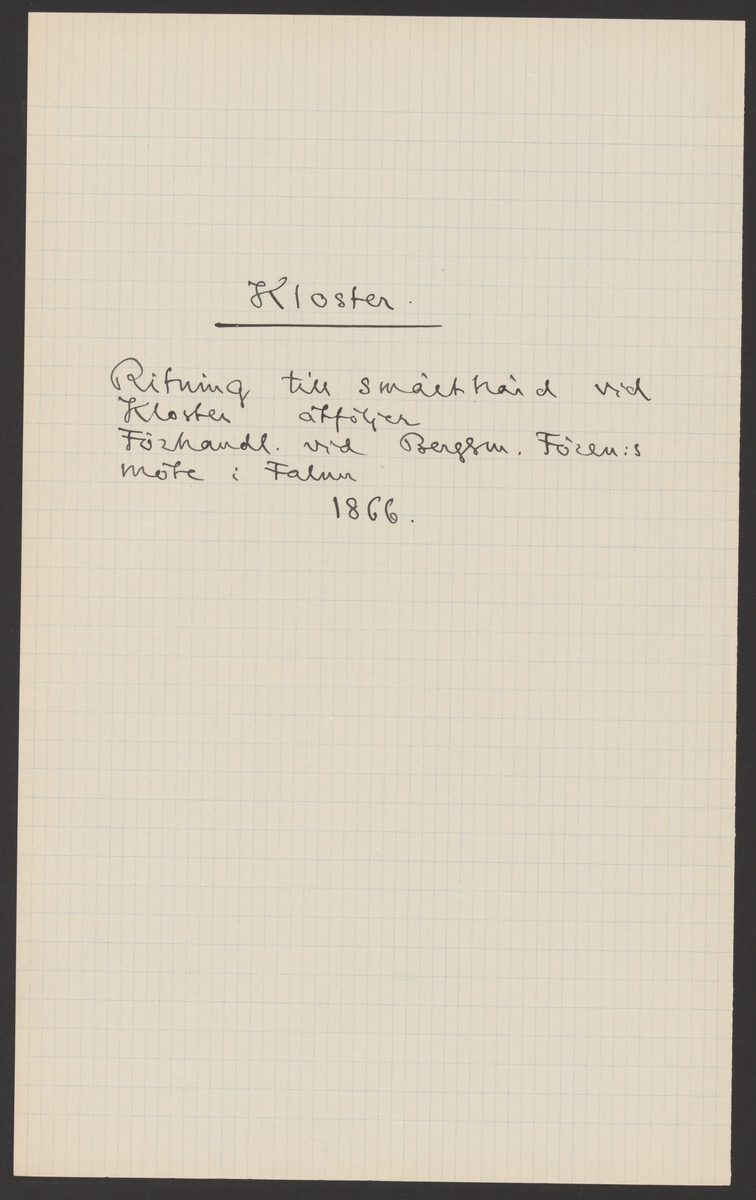 Kloster.
Ritning till smälthärd vid
Kloster åtföljer
Förhandl. vid Bergsm. Fören:s
möte i Falun
1866.